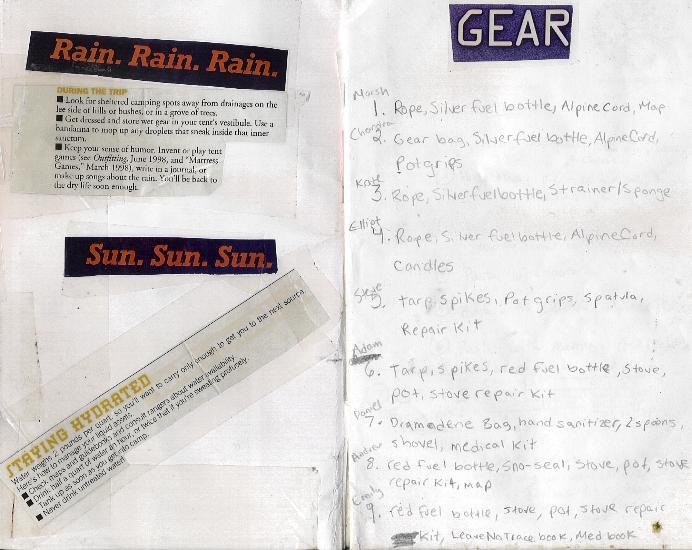 Rain. Rain. Rain.
DURING THE TRIP
■ Look for sheltered camping spots away from drainages on the
lee side of hills or bushes, or in a grove of trees.
■ Get dressed and store wet gear in your tent's vestibule. Use a
bandanna to mop up any droplets that sneak inside that inner
sanctum.
■ Keep your sense of humor. Invent or play tent
games (see Outfitting, June 1998, and "Mattress
Games," March 1998), write in a journal, or
make up songs about the rain. You'll be back to
the dry life soon enough.
Sun. Sun. Sun.
STAYING HYDRATED
Water weighs 2 pounds per quart, so you'll want to carry only enough to get you to the next source.
Here's how to manage your liquid assets.
■ Check maps and guidebooks and consult rangers about water availability.
■ Drink half a quart of water an hour, or twice that if you're sweating profusely.
■ Tank up as soon as you get into camp.
■ Never drink untreated water!
GEAR
Marsh
1. Rope, Silver fuel bottle, Alpine Cord, Map
2. Gear bag, Silver fuel bottle, Alpine Cord,
Pot grips
Kate
3. Rope, Silver fuel bottle, Strainer/Sponge
Elliot
4. Rope, Silver fuel bottle, Alpine Cord,
Candles
Steve
5. tarp, spikes, Pot grips, Spatula,
Repair Kit
Adam
6. Tarp, spikes, red fuel bottle, stove,
pot, stove repair kit
Daniel
7. Dramedene Bag, hand sanitizer, 2 spoons,
shovel, medical Kit
Andrew
8. red fuel bottle, Sno-seal, Stove, pot, stove
repair Kit, map
Emily
9. red fuel bottle, stove, pot, stove repair
Kit, Leave No Trace book, Med book